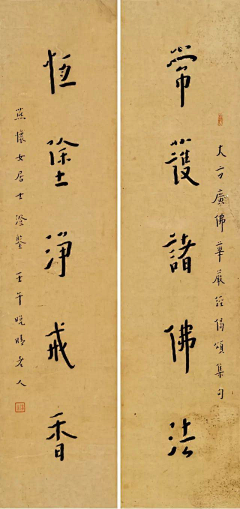 大方廣佛華嚴經偈頌集句
常護諸佛法
恆塗淨戒香
懷女居士澄鑒 壬午晚晴老人